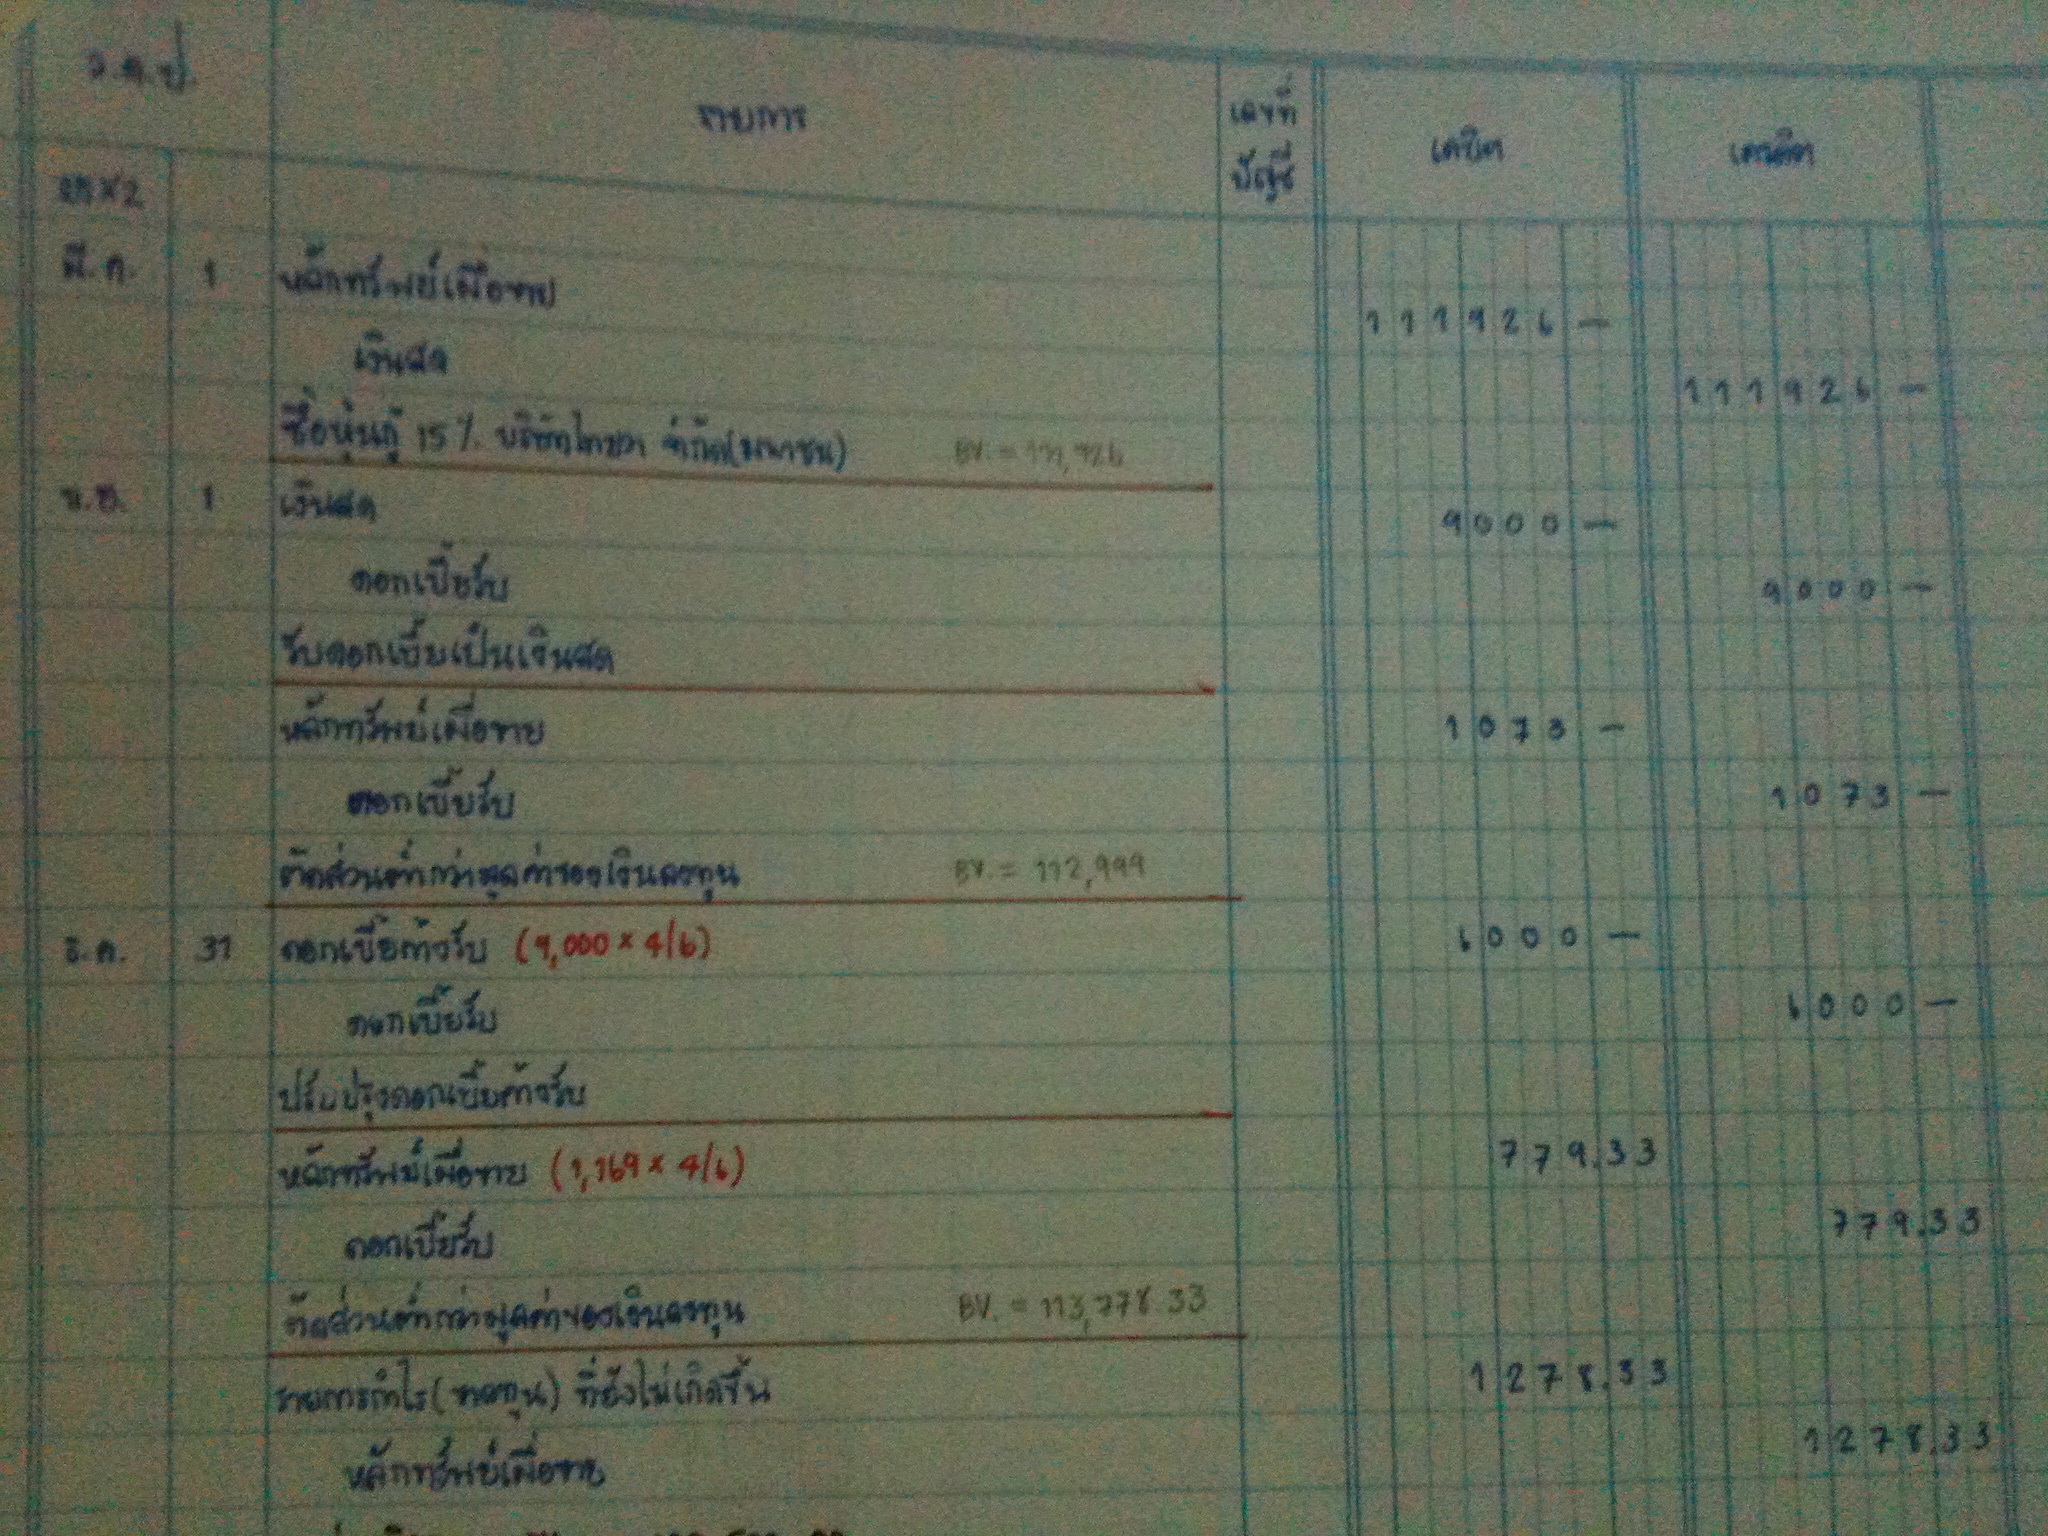 ว.ด.ป. รายการ เลขที่บัญชี เดบิต เครดิต
25×2
มี.ค. 1 หลักทรัพย์เผื่อขาย 111926 —
เงินสด 111926 —
ซื้อหุ้นกู้ 15% บริษัทไทยวา จำกัด(มหาชน) BV. = 111,926
1 เงินสด 9000 —
ดอกเบี้ยรับ 9000 —
รับดอกเบี้ยเป็นเงินสด
หลักทรัพย์เผื่อขาย 1073 —
ดอกเบี้ยรับ 1073 —
ตัดส่วนต่ำกว่ามูลค่าของเงินลงทุน BV. = 112,999
ธ.ค. 31 ดอกเบี้ยค้างรับ (9,000 × 4/6) 6000 —
ดอกเบี้ยรับ 6000 —
ปรับปรุงดอกเบี้ยค้างรับ
หลักทรัพย์เผื่อขาย (1,169 × 4/6) 779.33
ดอกเบี้ยรับ 779.33
ตัดส่วนต่ำกว่ามูลค่าของเงินลงทุน BV. = 113,778.33
รายการกำไร(ขาดทุน) ที่ยังไม่เกิดขึ้น 1278.33
หลักทรัพย์เผื่อขาย 1278.33